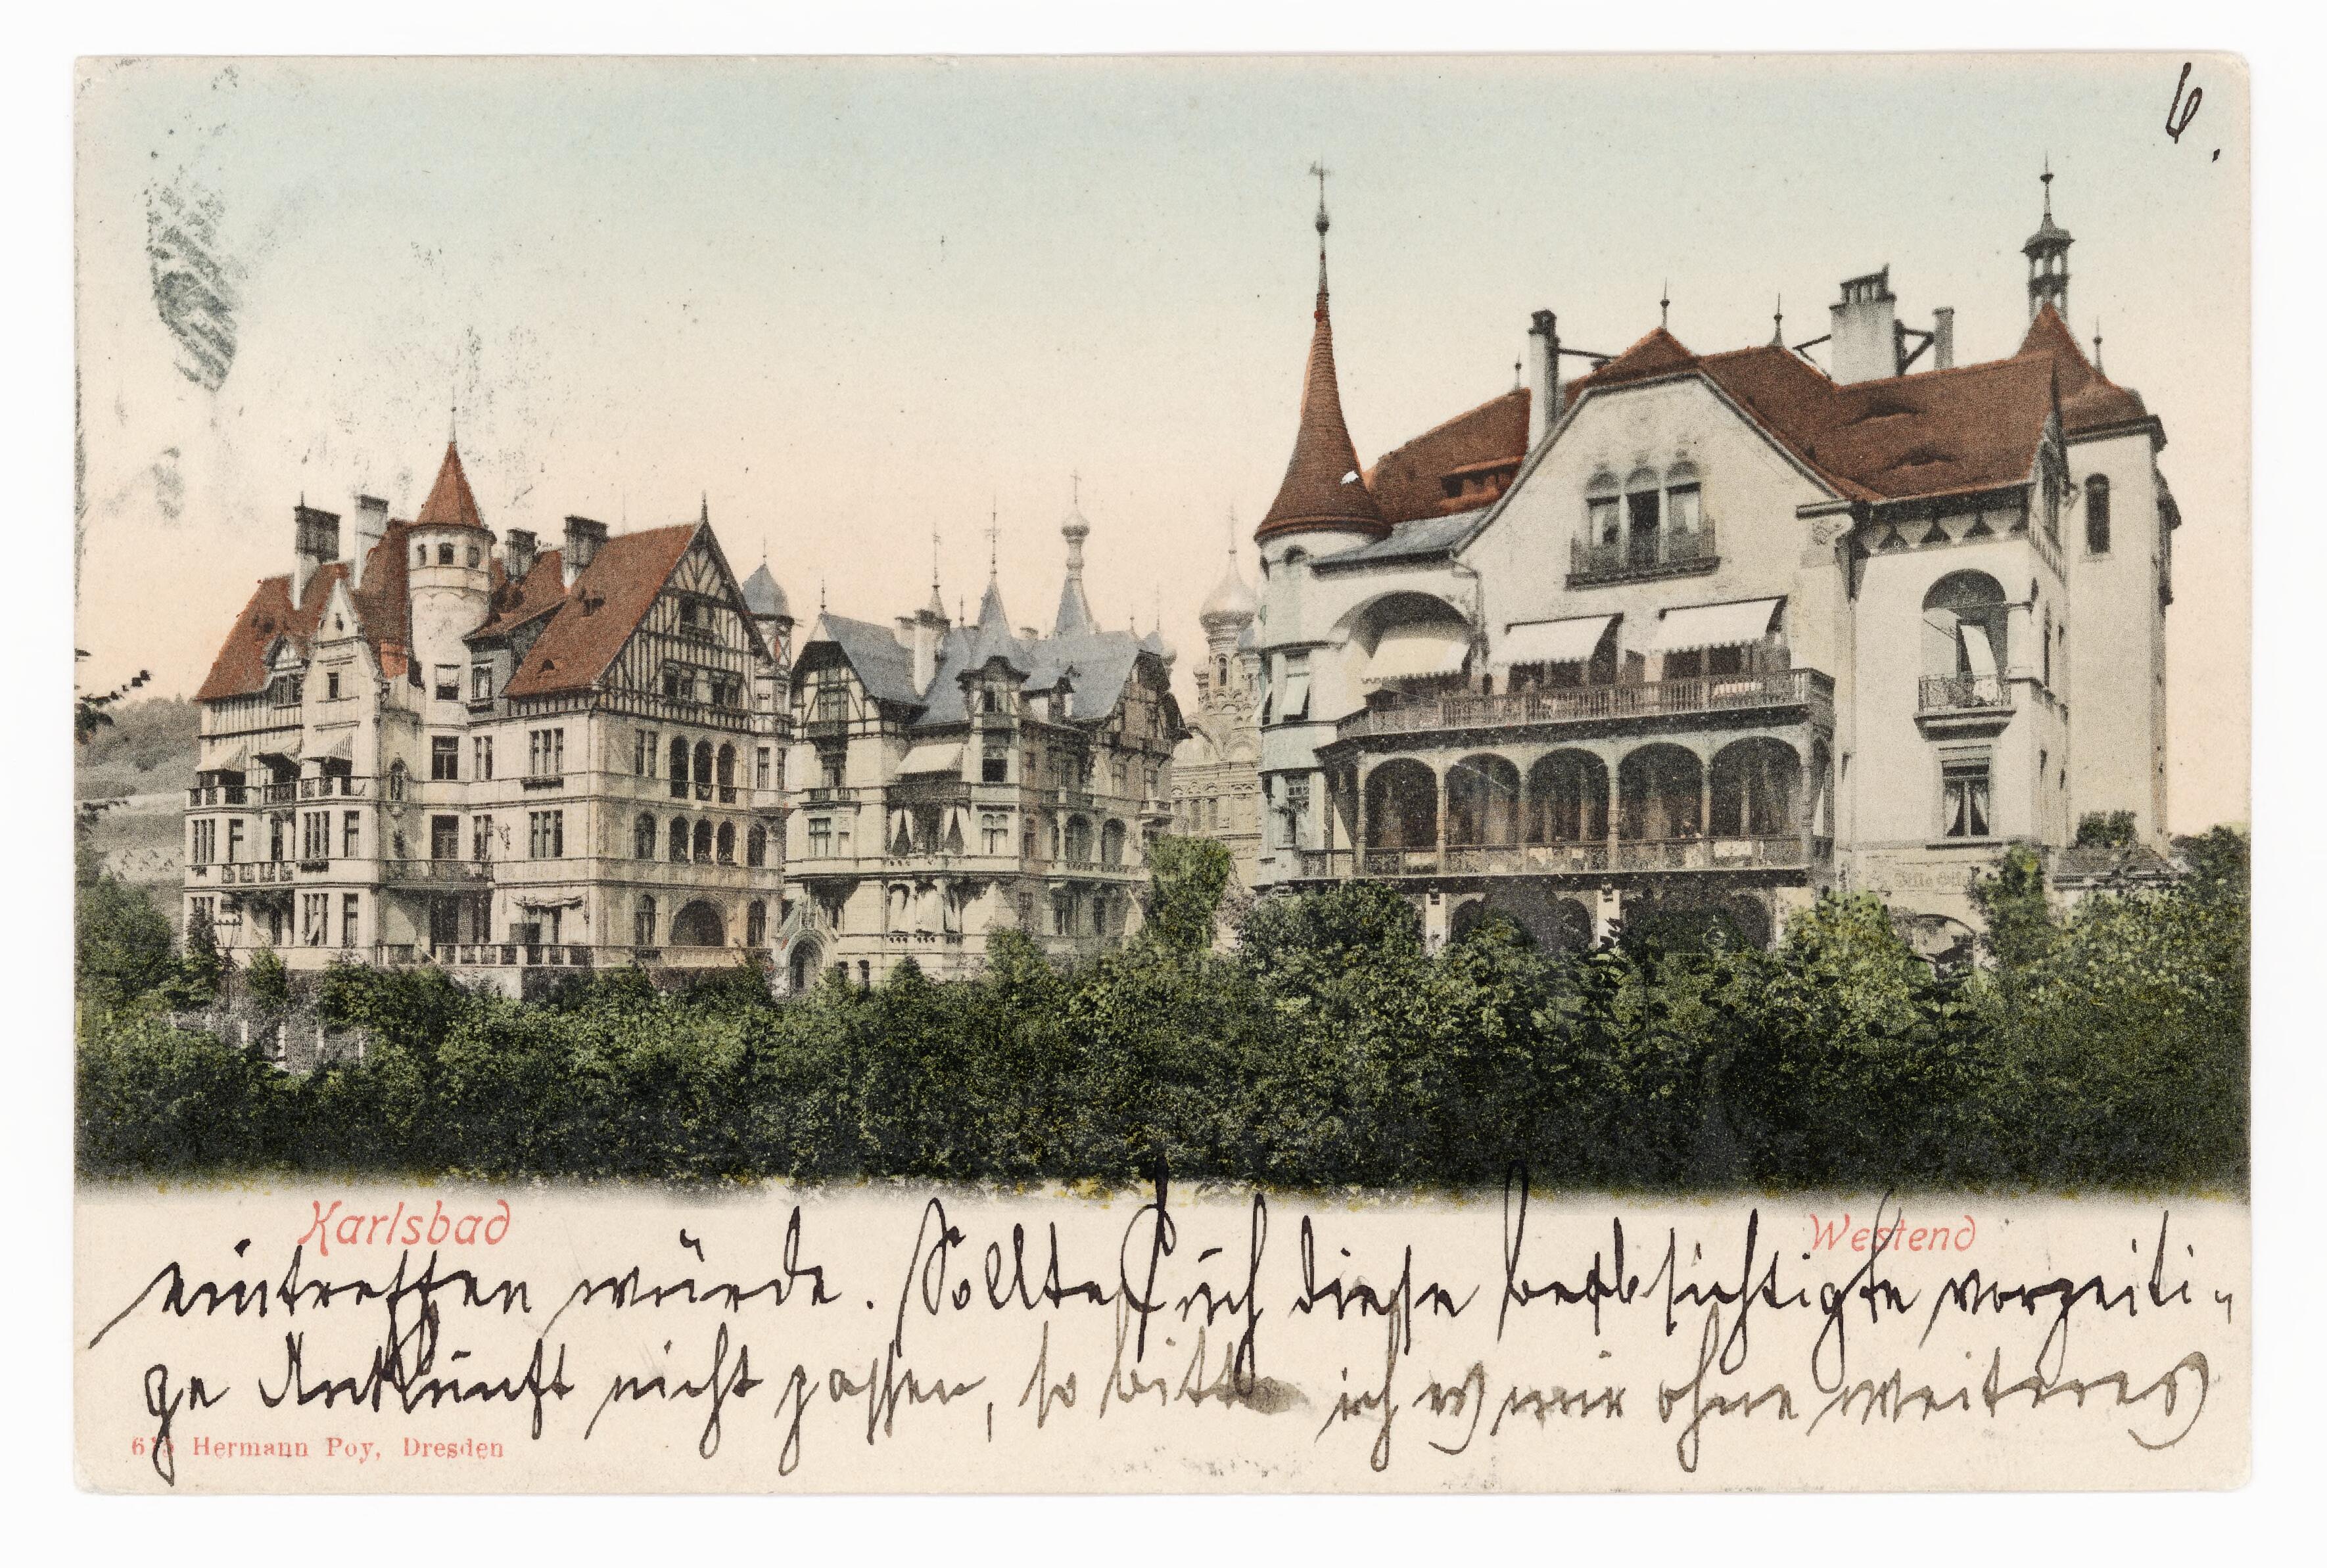 6.
Karlsbad
Westend
eintreffen würde. Sollte Euch diese beabsichtigte vorzeiti-
ge Ankunft nicht passen, so bitte ich es mir ohne weiteres
Hermann Poy, Dresden